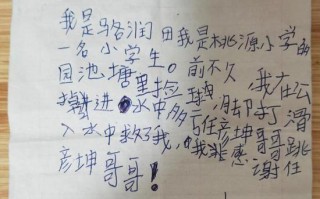 我是骆润田我是桃源小学的
一名小学生。前不久,我在公
园池塘里捡球,脚打滑
掉进水中多亏任彦坤哥哥跳
入水中救了我,我非感谢任
彦坤哥哥!